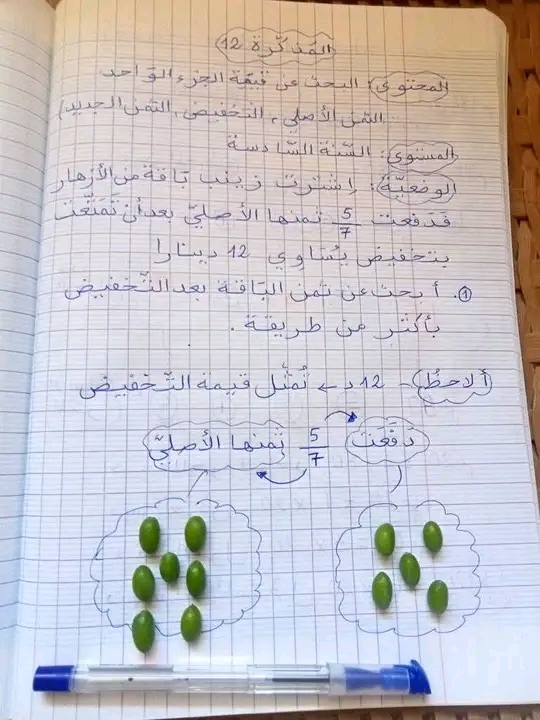 المذكّرة 12
المحتوى: البحث عن قيمة الجزء الواحد
(الثمن الأصلي، التخفيض، الثمن الجديد)
المستوى: السّنة السّادسة
الوضعيّة: اشترت زينب باقة من الأزهار
فدفعت 5/7 ثمنها الأصليّ بعد أن تمتّعت
بتخفيض يُساوي 12 دينارا
1. أبحث عن ثمن الباقة بعد التّخفيض
بأكثر من طريقة.
ألاحظُ - 12 د ← تُمثّل قيمة التّخفيض
دَفَعَت 5/7 ثمنها الأصليّ